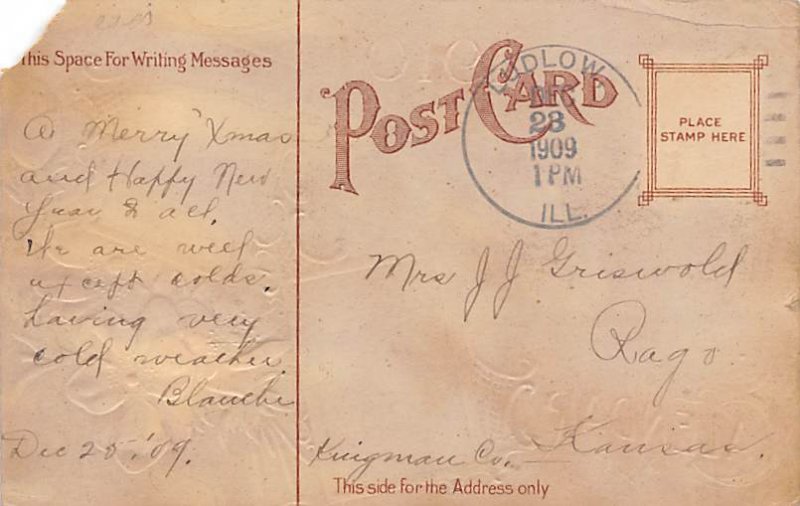 This Space For Writing Messages
A Merry Xmas
and Happy New
Year to all.
We are well
except colds.
having very
cold weather.
Blanche
Dec 25, '09.
POST CARD
LUDLOW
DEC
28
1909
1 PM
ILL.
PLACE
STAMP HERE
Mrs J J Griswold
Rago
Kingman Co. Kansas.
This side for the Address only